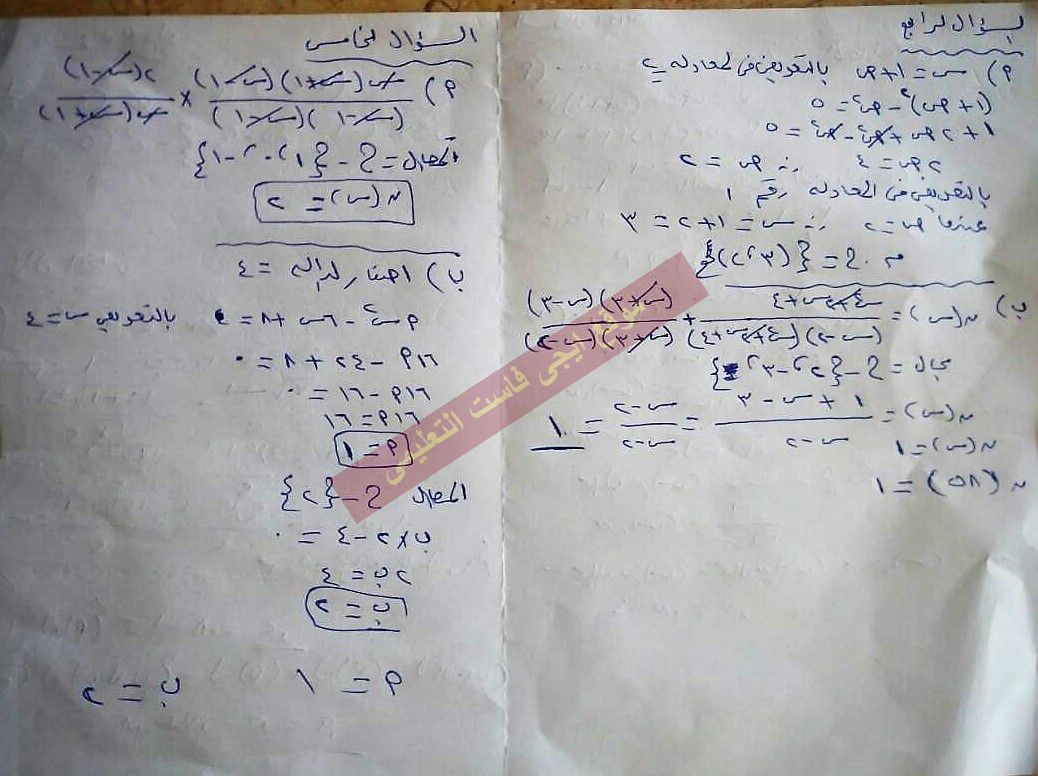 السؤال الرابع
٢) س = ١ + ص بالتعويض فى المعادلة ٢
(١ + ص)٢ - ص٢ = ٥
١ + ٢ص + ص٢ - ص٢ = ٥
٢ص = ٤ ∴ ص = ٢
بالتعويض فى المعادلة رقم ١
عندما ص = ٢ ∴ س = ١ + ٢ = ٣
م . ح = {(٣ ، ٢)}
ب) ن(س) = س٢ + ٢س + ٤ / (س - ٢)(س٢ + ٢س + ٤) + (س + ٣)(س - ٣) / (س + ٣)(س - ٢)
مجال = ح - {٢ ، -٣}
ن(س) = ١ + س - ٣ / س - ٢ = س - ٢ / س - ٢ = ١
ن(س) = ١
ن(٥٨) = ١
السؤال الخامس
٢) س(س + ١)(س - ١) / (س - ١)(س - ١) × ٢(س - ١) / س(س + ١)
المجال = ح - {١ ، ٠ ، -١}
ن(س) = ٢
ب) اصفار الدالة = ٤
٢س٢ - ٦س + ٨ = ٠ بالتعويض س = ٤
١٦٢ - ٢٤ + ٨ = ٠
١٦٢ - ١٦ = ٠
١٦٢ = ١٦
٢ = ١
المجال ح - {٢}
ب × ٢ - ٤ = ٠
٢ب = ٤
ب = ٢
٢ = ١ ب = ٢
موقع ايجى فاست التعليمى